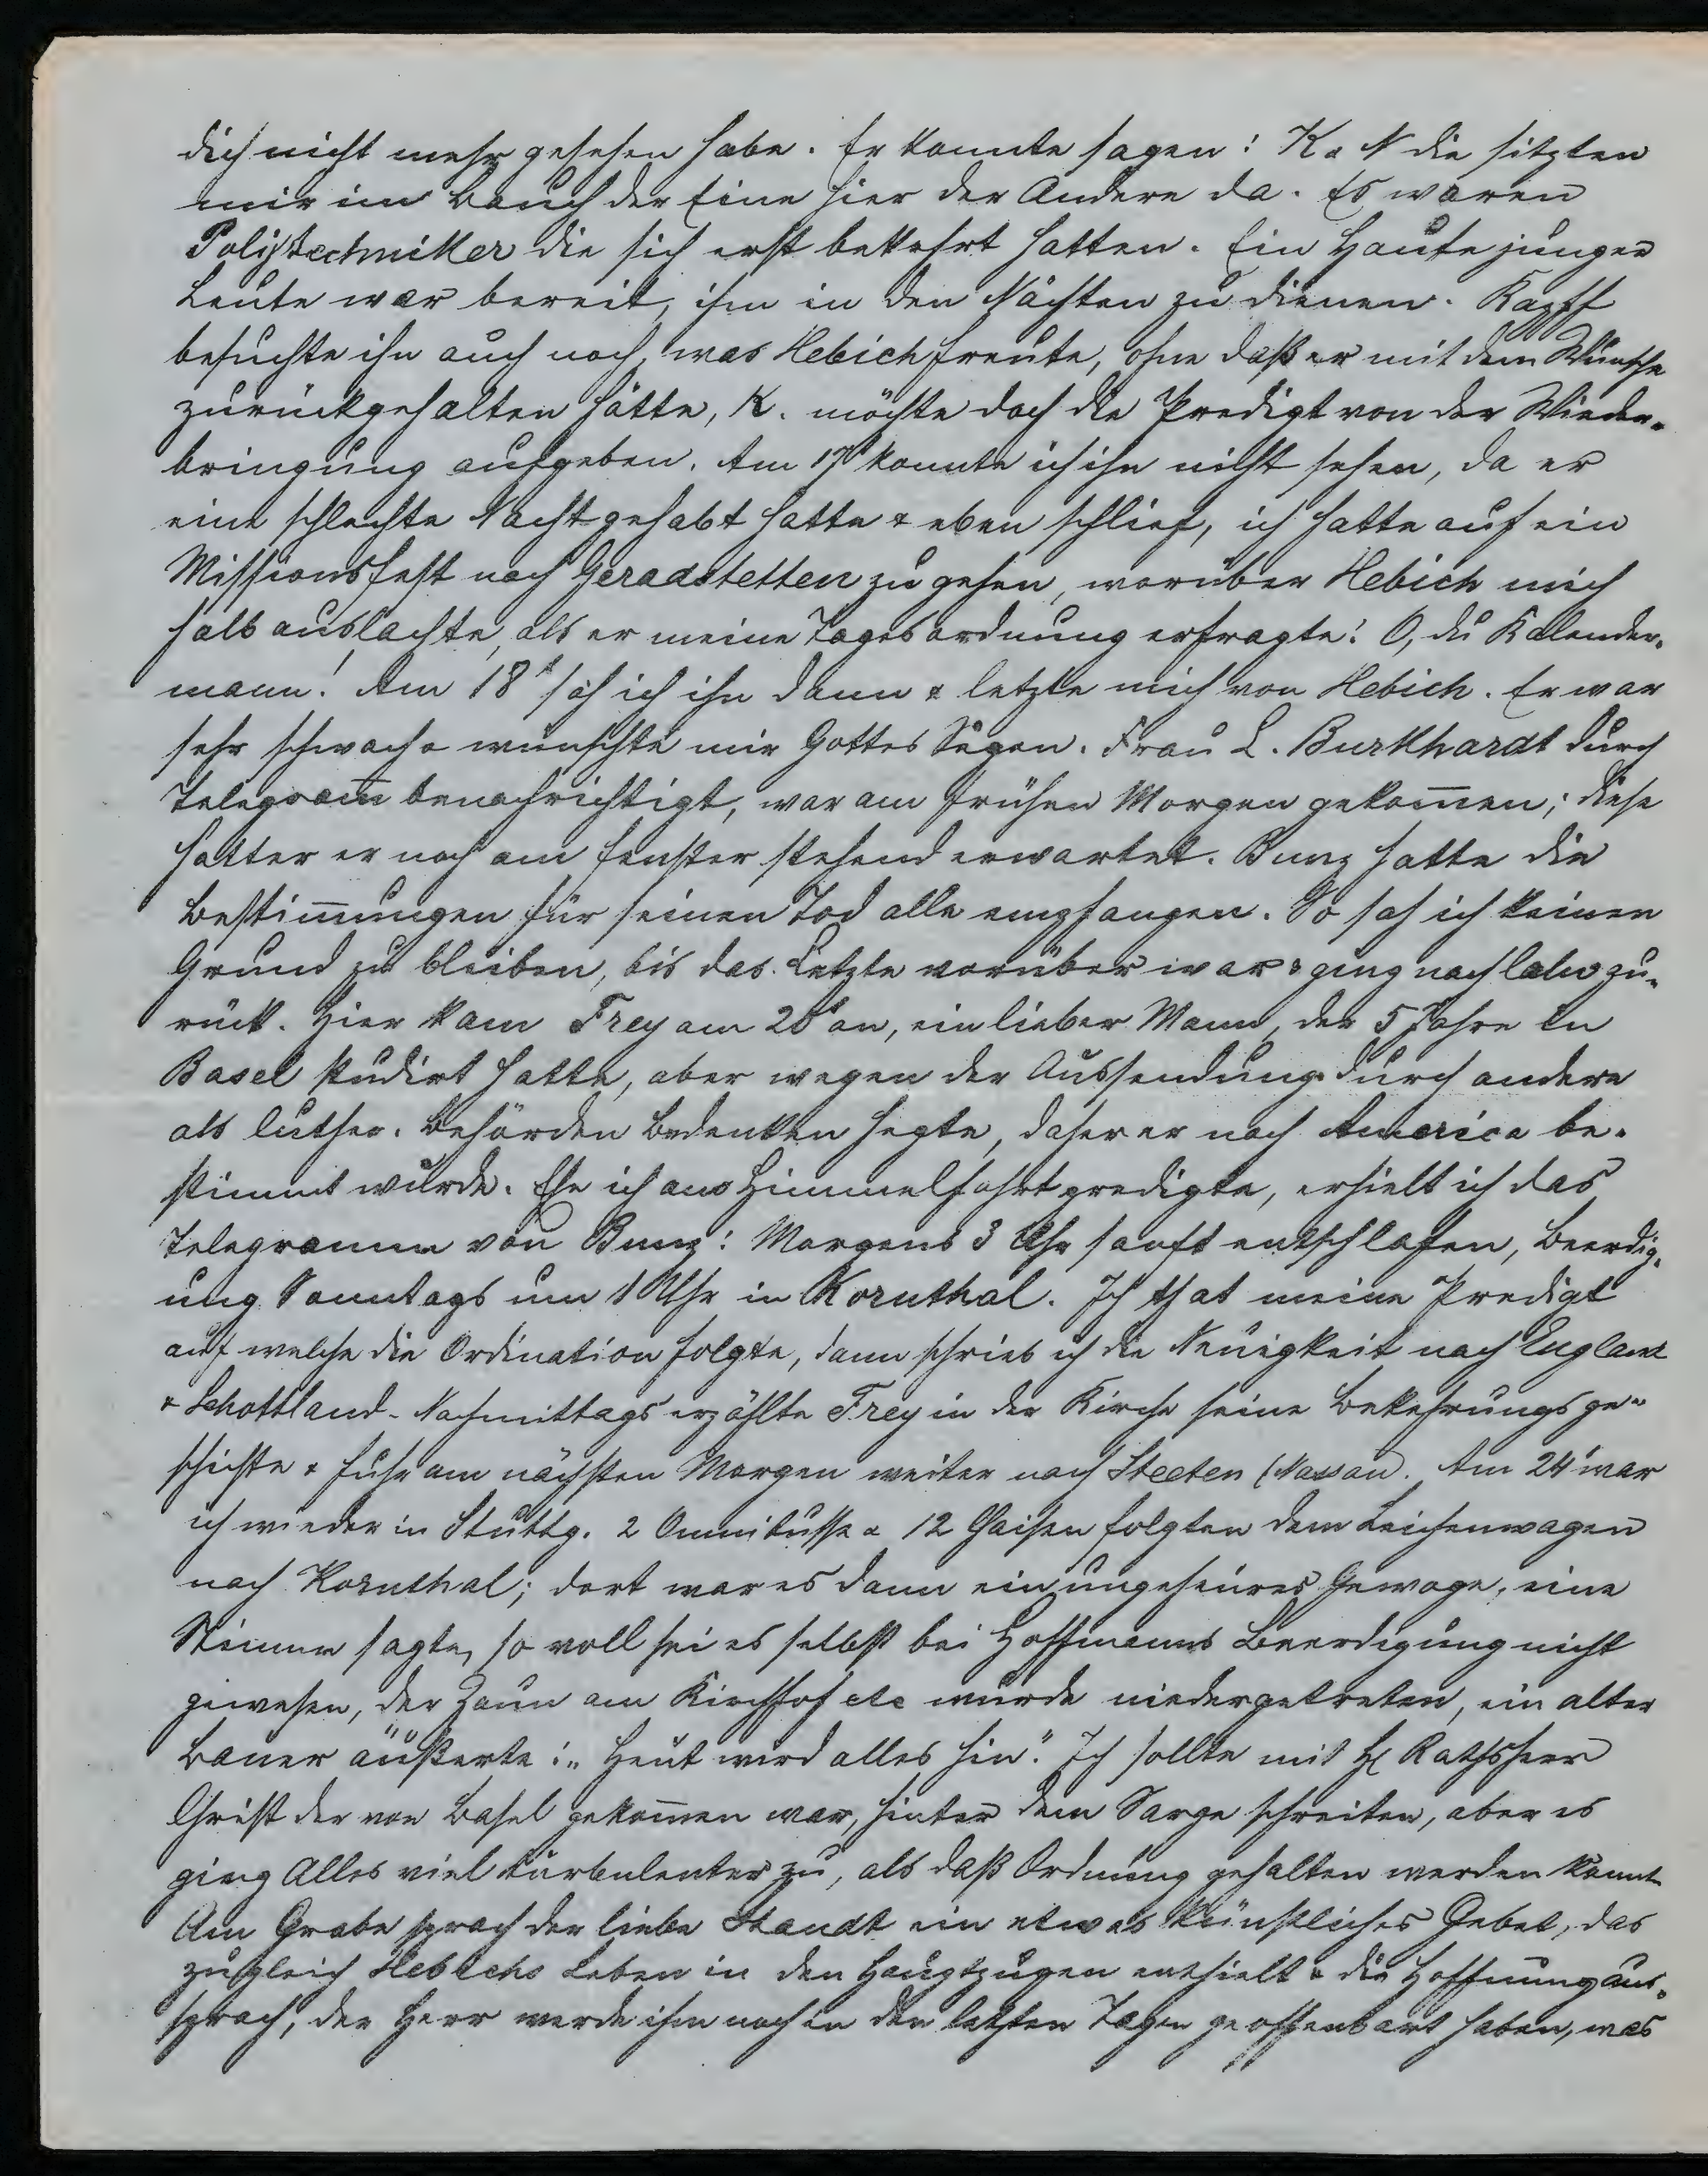 dich nicht mehr gesehen habe. Er konnte sagen: K & N die sitzten
mir im Bauch der Eine hier der Andere da. Es waren
Polytechniker die sich erst bekehrt hatten. Ein Haufe junger
Leute war bereit, ihm in den Nächten zu dienen. Kapff
besuchte ihn auch noch, was Hebich freute, ohne daß er mit dem Wunsche
zurückgehalten hätte, K. möchte doch die Predigt von der Wieder-
bringung aufgeben. Am 17t konnte ich ihn nicht sehen, da er
eine schlechte Nacht gehabt hatte & eben schlief, ich hatte auf ein
Missionsfest nach Geradstetten zu gehen, worüber Hebich mich
halb auslachte, als er meine Tagesordnung erfragte: O, du Kalender-
mann! Am 18t sah ich ihn dann & letzte mich von Hebich. Er war
sehr schwach & wünschte mir Gottes Segen. Frau L. Burkhardt durch
Telegram̅ benachrichtigt, war am frühen Morgen gekom̅en; diese
hatter er noch am Fenster stehend erwartet. Bunz hatte die
Bestim̅ungen für seinen Tod alle empfangen. So sah ich keinen
Grund zu bleiben, bis das Letzte vorüber war & ging nach Calw zu-
rück. Hier kam Frey am 20t an, ein lieber Mann, der 5 Jahre in
Basel studirt hatte, aber wegen der Aussendung durch andere
als luther. Behörden Bedenken hegte, daher er nach America be-
stimmt wurde. Ehe ich am Himmelfahrt predigte, erhielt ich das
Telegramm von Bunz: Morgens 3 Uhr sanft entschlafen, Beerdig-
ung Sonntags um 1 Uhr in Kornthal. Ich that meine Predigt
auf welche die Ordination folgte, dann schrieb ich die Neuigkeit nach England
& Schottland. Nachmittags erzählte Frey in der Kirche seine Bekehrungsge-
schichte & fuhr am nächsten Morgen weiter nach Steeten (Nassau). Am 24t war
ich wieder in Stuttg. 2 Omnibusse & 12 Chaisen folgten dem Leichenwagen
nach Kornthal; dort war es dann ein ungeheures Gewoge, eine
Stimme sagte, so voll sei es selbst bei Hoffmanns Beerdigung nicht
gewesen, der Zaun am Kirchhof etc wurde niedergetreten, ein alter
Bauer äußerte: "Heut wird alles hin." Ich sollte mit H Rathsherr
Christ der von Basel gekom̅en war, hinter dem Sarge schreiten, aber es
ging Alles viel turbulenter zu, als daß Ordnung gehalten werden konnt
Am Grabe sprach der liebe Staudt ein etwas künstliches Gebet, das
zugleich Hebichs Leben in den Hauptzügen enthielt & die Hoffnung aus-
sprach, der Herr werde ihm noch in den letzten Tagen geoffenbart haben, was